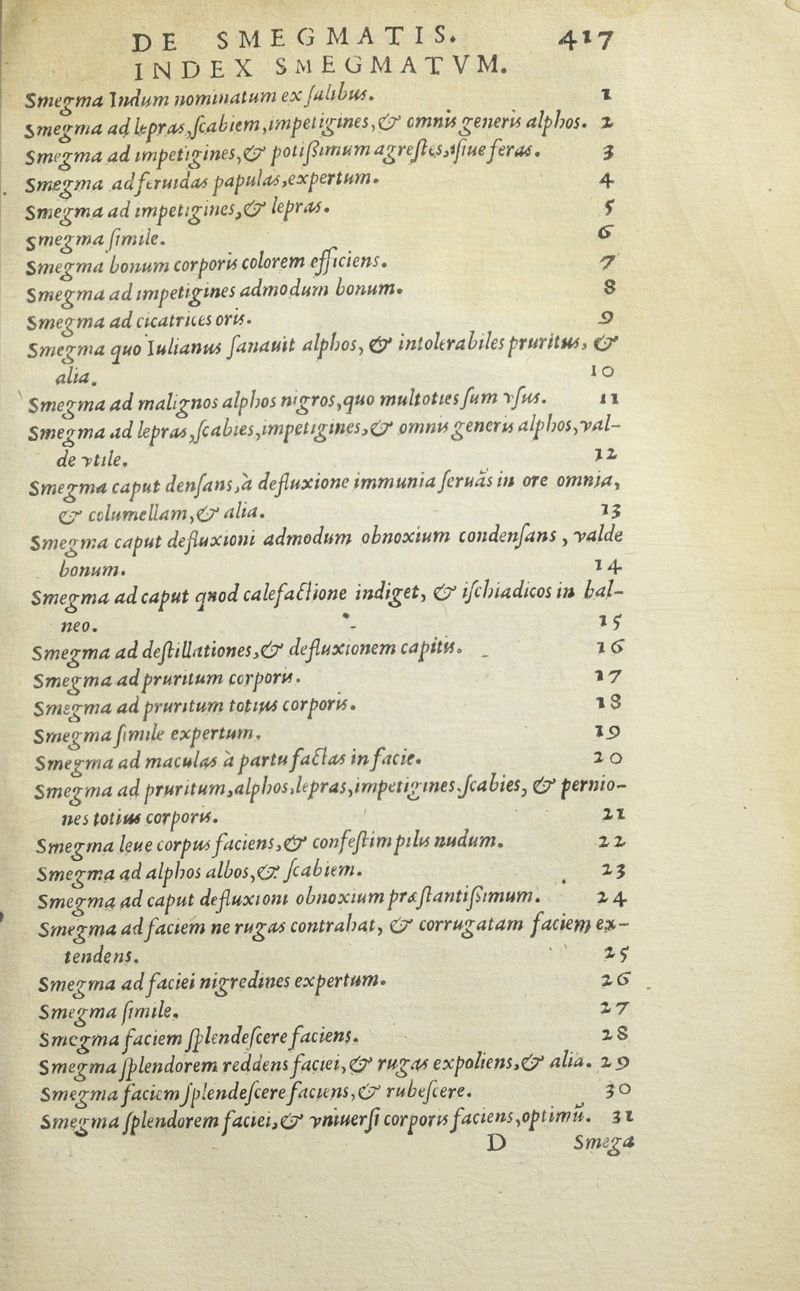 DE SMEGMATIS. 417
INDEX SMEGMATVM.
Smegma Indum nominatum ex ſalibus. 1
Smegma ad lepras,ſcabiem,impetigines,& omnis generis alphos. 2
Smegma ad impetigines,& potiſſimum agreſtes,ſiue feras. 3
Smegma ad feruidas papulas,expertum. 4
Smegma ad impetigines,& lepras. 5
Smegma ſimile. 6
Smegma bonum corporis colorem efficiens. 7
Smegma ad impetigines admodum bonum. 8
Smegma ad cicatrices oris. 9
Smegma quo Iulianus ſanauit alphos, & intolerabiles pruritus, &
alia. 10
Smegma ad malignos alphos nigros,quo multoties ſum vſus. 11
Smegma ad lepras,ſcabies,impetigines,& omnis generis alphos,val-
de vtile. 12
Smegma caput denſans,à defluxione immunia ſeruās in ore omnia,
& columellam,& alia. 13
Smegma caput defluxioni admodum obnoxium condenſans , valde
bonum. 14
Smegma ad caput quod calefactione indiget, & iſchiadicos in bal-
neo. 15
Smegma ad deſtillationes,& defluxionem capitis. 16
Smegma ad pruritum corporis. 17
Smegma ad pruritum totius corporis. 18
Smegma ſimile expertum. 19
Smegma ad maculas à partu factas in facie. 20
Smegma ad pruritum,alphos,lepras,impetigines,ſcabies, & pernio-
nes totius corporis. 21
Smegma leue corpus faciens,& confeſtim pilis nudum. 22
Smegma ad alphos albos,& ſcabiem. 23
Smegma ad caput defluxioni obnoxium præſtantiſſimum. 24
Smegma ad faciem ne rugas contrahat, & corrugatam faciem ex-
tendens. 25
Smegma ad faciei nigredines expertum. 26
Smegma ſimile. 27
Smegma faciem ſplendeſcere faciens. 28
Smegma ſplendorem reddens faciei,& rugas expoliens,& alia. 29
Smegma faciem ſplendeſcere faciens,& rubeſcere. 30
Smegma ſplendorem faciei,& vniuerſi corporis faciens,optimū. 31
D Smega